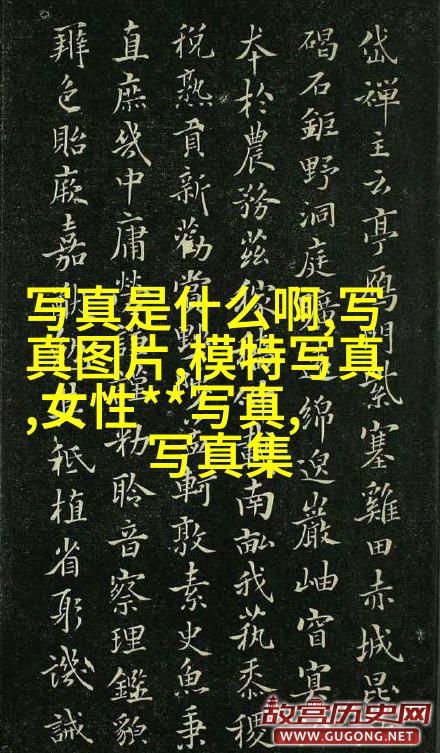 岱禪主云亭鴈門紫塞雞田赤城昆
碣石鉅野洞庭曠遠綿邈巖岫窅冥
本於農務茲稼載南畝我蓺黍稷
稅熟貢新勸賞黜軻敦素史魚秉
直庶幾中庸勞謙謹勑聆音察理鑑貌
辯色貽厥嘉猷勉其祗植省躬譏誡
写真是什么啊,写
真图片,模特写真
,女性**写真,
写真集
故宫历史网
WWW.GUGONG.NET